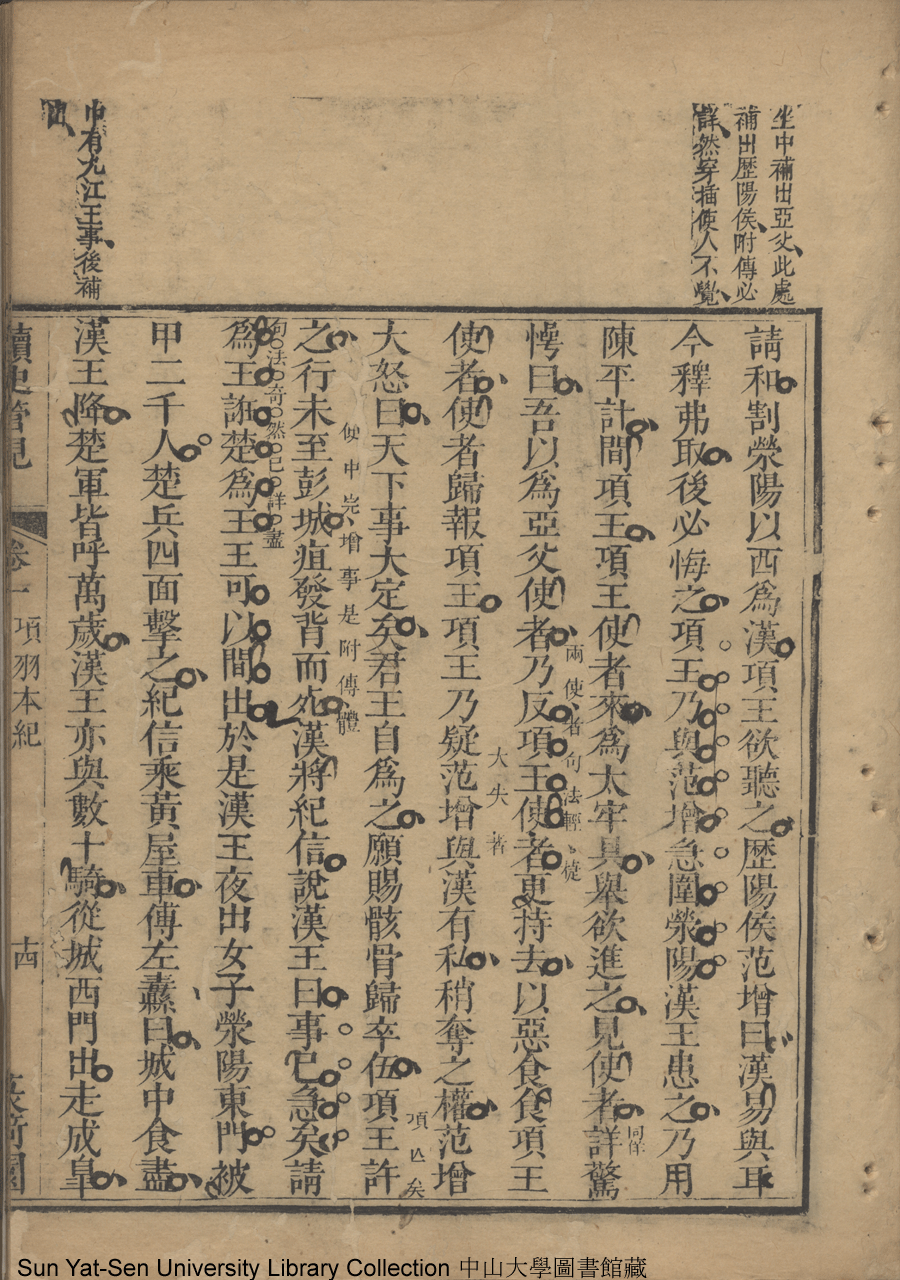 坐中補出亞父此處
補出歷陽侯附傳必
詳然穿插使人不覺
請和割滎陽以西爲漢項王欲聽之歷陽侯范增曰漢易與耳
今釋弗取後必悔之項王乃與范增急圍滎陽漢王患之乃用
陳平計間項王項王使者來爲太牢具舉欲進之見使者詳驚
同佯
愕曰吾以爲亞父使者乃反項王使者更持去以惡食食項王
兩使者句法輕
使者使者歸報項王項王乃疑范增與漢有私稍奪之權范增
大失著
大怒曰天下事大定矣君王自爲之願賜骸骨歸卒伍項王許
項亡矣
之行未至彭城疽發背而死漢將紀信說漢王曰事已急矣請
便中完增事是附傳體
爲王誑楚爲王王可以間出於是漢王夜出女子滎陽東門被
句法奇然已詳盡
甲二千人楚兵四面擊之紀信乘黃屋車傅左纛曰城中食盡
漢王降楚軍皆呼萬歲漢王亦與數十騎從城西門出走成皋
中有九江王事後補
出
讀史管見
卷一
項羽本紀
十四